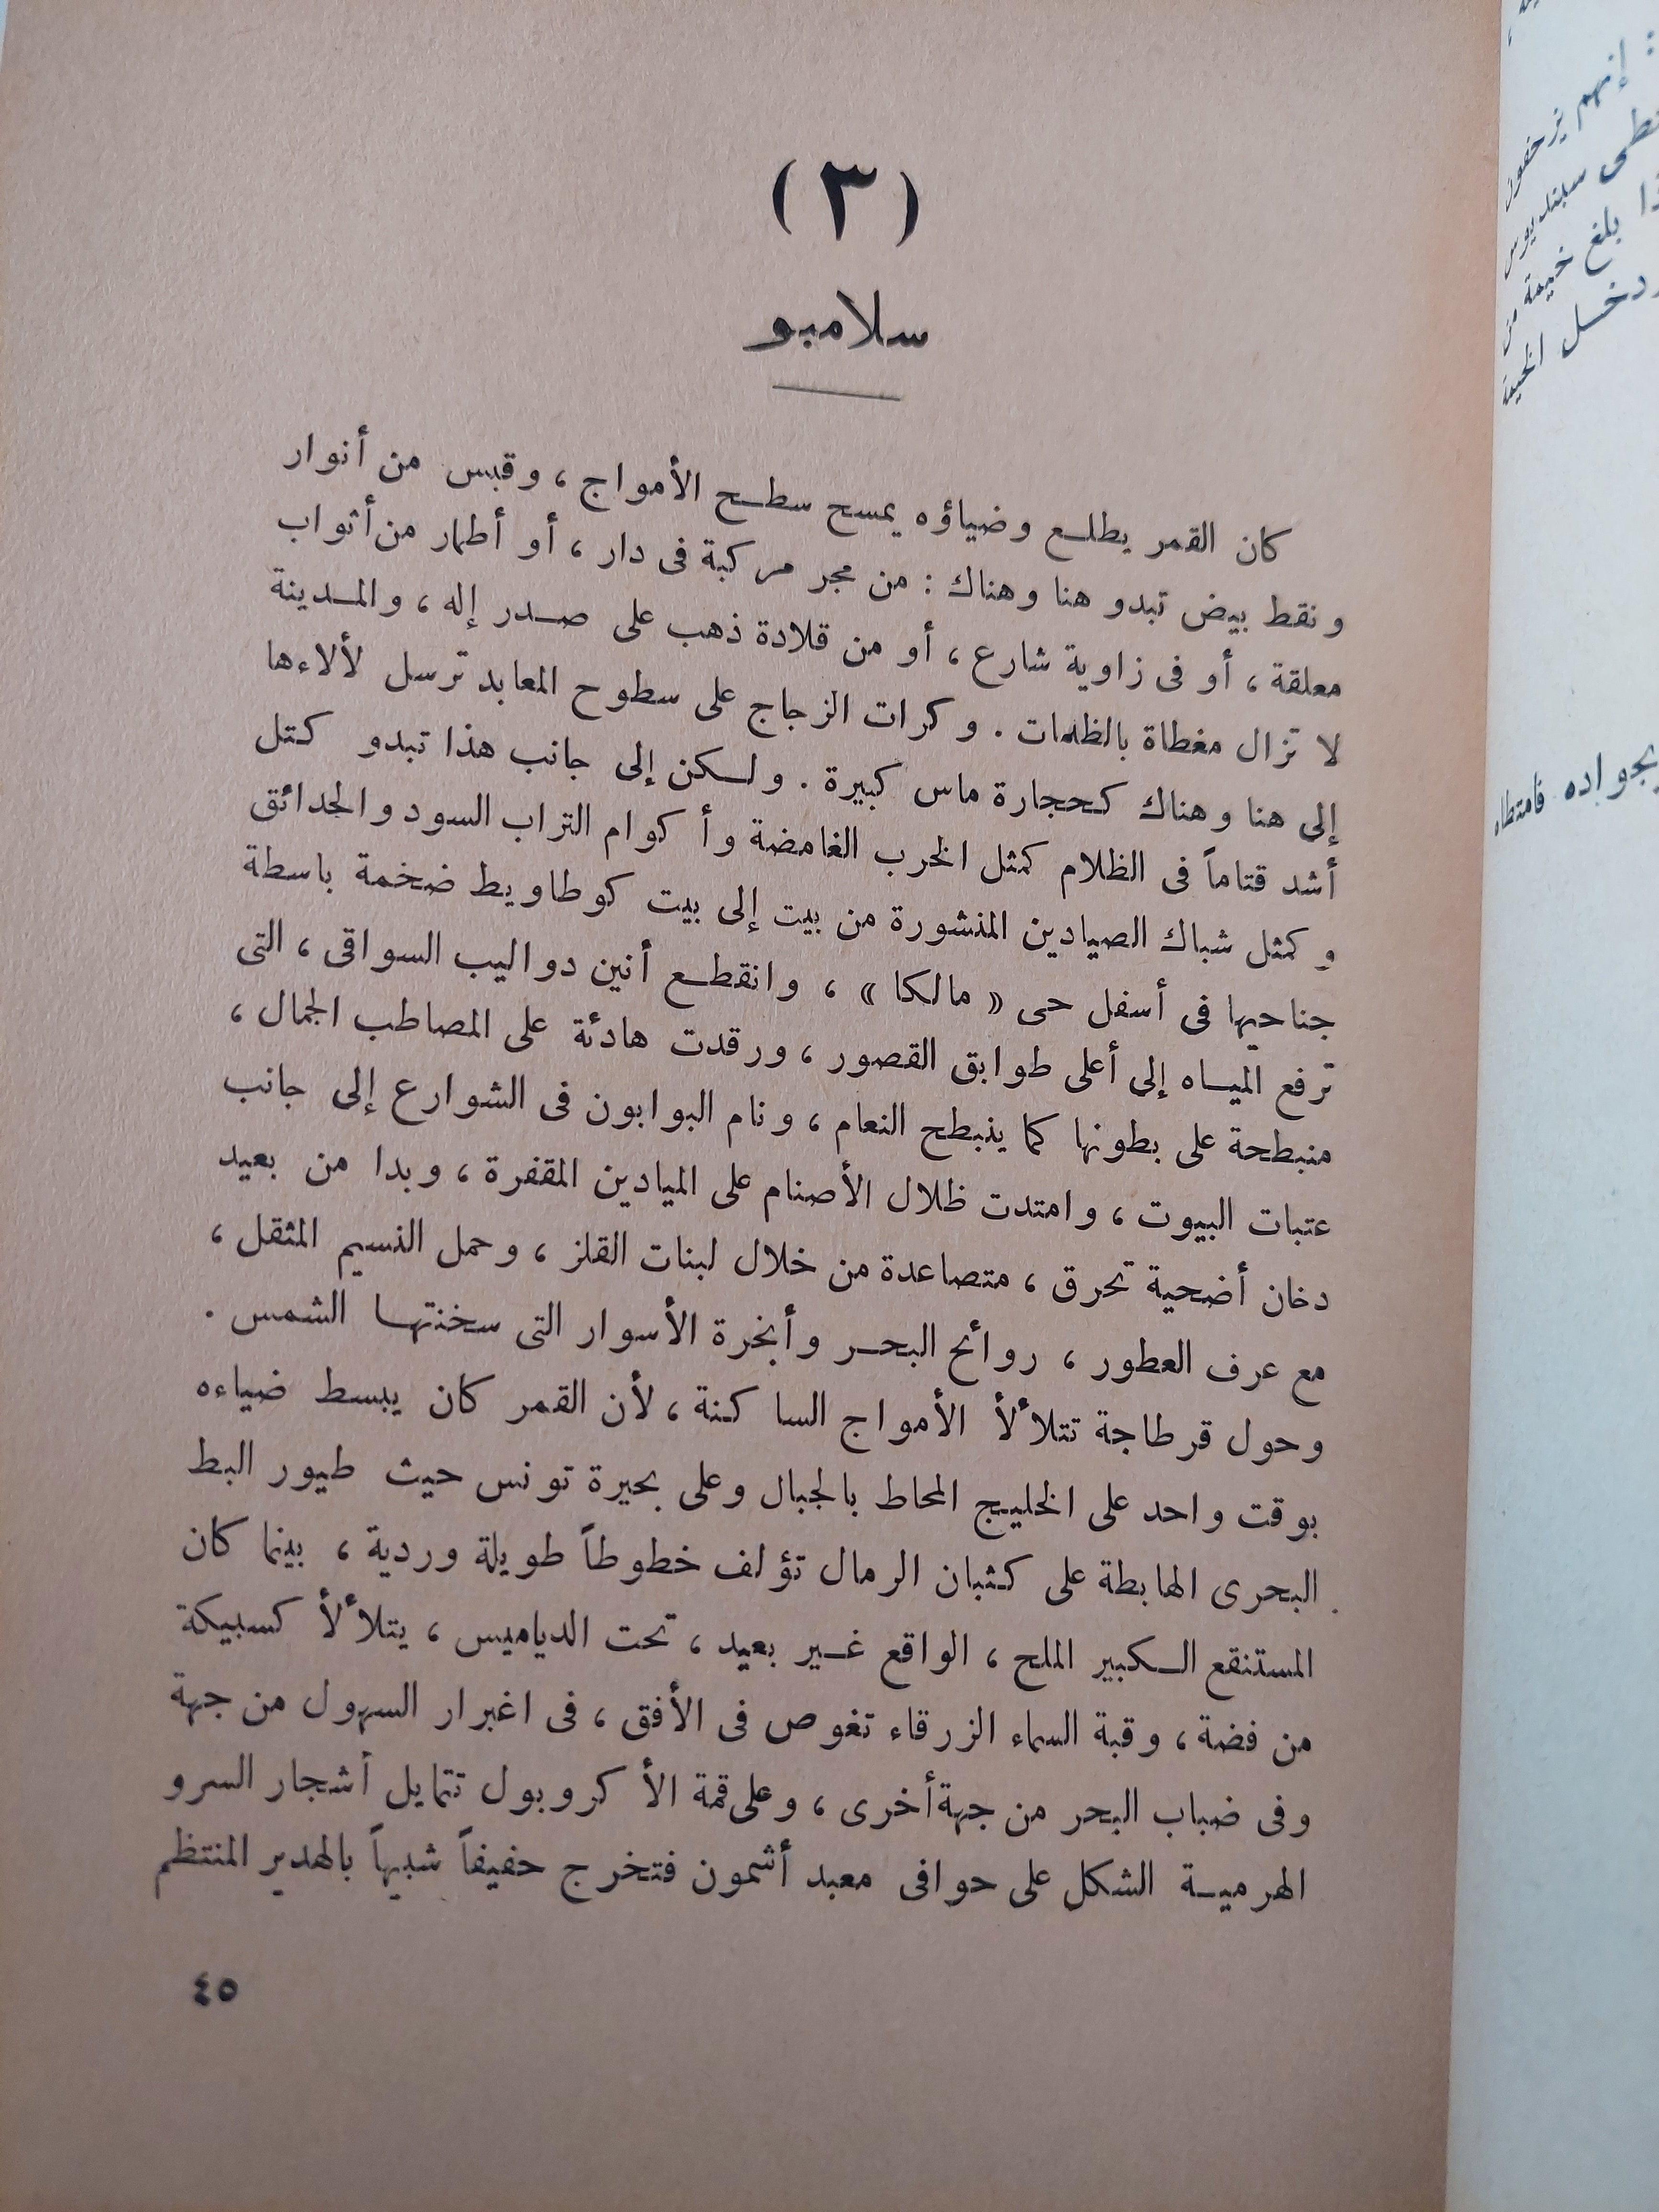 (٣)
سلامبو
كان القمر يطلع وضياؤه يمسح سطح الأمواج ، وقبس من أنوار
ونقط بيض تبدو هنا وهناك : من مجر مركبة فى دار ، أو أطمار من أثواب
معلقة ، أو فى زاوية شارع ، أو من قلادة ذهب على صدر إله ، والمدينة
لا تزال مغطاة بالظلمات . وكرات الزجاج على سطوح المعابد ترسل لألاءها
إلى هنا وهناك كحجارة ماس كبيرة . ولكن إلى جانب هذا تبدو كتل
أشد قتاماً فى الظلام كمثل الخرب الغامضة وأكوام التراب السود والحدائق
وكمثل شباك الصيادين المنشورة من بيت إلى بيت كوطاويط ضخمة باسطة
جناحيها فى أسفل حى « مالكا » ، وانقطع أنين دواليب السواقى ، التى
ترفع المياه إلى أعلى طوابق القصور ، ورقدت هادئة على المصاطب الجمال ،
منبطحة على بطونها كما ينبطح النعام ، ونام البوابون فى الشوارع إلى جانب
عتبات البيوت ، وامتدت ظلال الأصنام على الميادين المقفرة ، وبدا من بعيد
دخان أضحية تحرق ، متصاعدة من خلال لبنات القلز ، وحمل النسيم المثقل ،
مع عرف العطور ، روائح البحر وأبخرة الأسوار التى سخنتها الشمس .
وحول قرطاجة تتلألأ الأمواج الساكنة ، لأن القمر كان يبسط ضياءه
بوقت واحد على الخليج المحاط بالجبال وعلى بحيرة تونس حيث طيور البط
البحرى الهابطة على كثبان الرمال تؤلف خطوطاً طويلة وردية ، بينما كان
المستنقع الكبير الملح ، الواقع غير بعيد ، تحت الدياميس ، يتلألأ كسبيكة
من فضة ، وقبة السماء الزرقاء تغوص فى الأفق ، فى اغبرار السهول من جهة
وفى ضباب البحر من جهة أخرى ، وعلى قمة الأكروبول تتمايل أشجار السرو
الهرمية الشكل على حوافى معبد أشمون فتخرج حفيفاً شبيهاً بالهدير المنتظم
٤٥
: إنهم يزحفون
سبنديوس
بلغ خيمة من
دخل الخيمة
بجواده فامتطاه